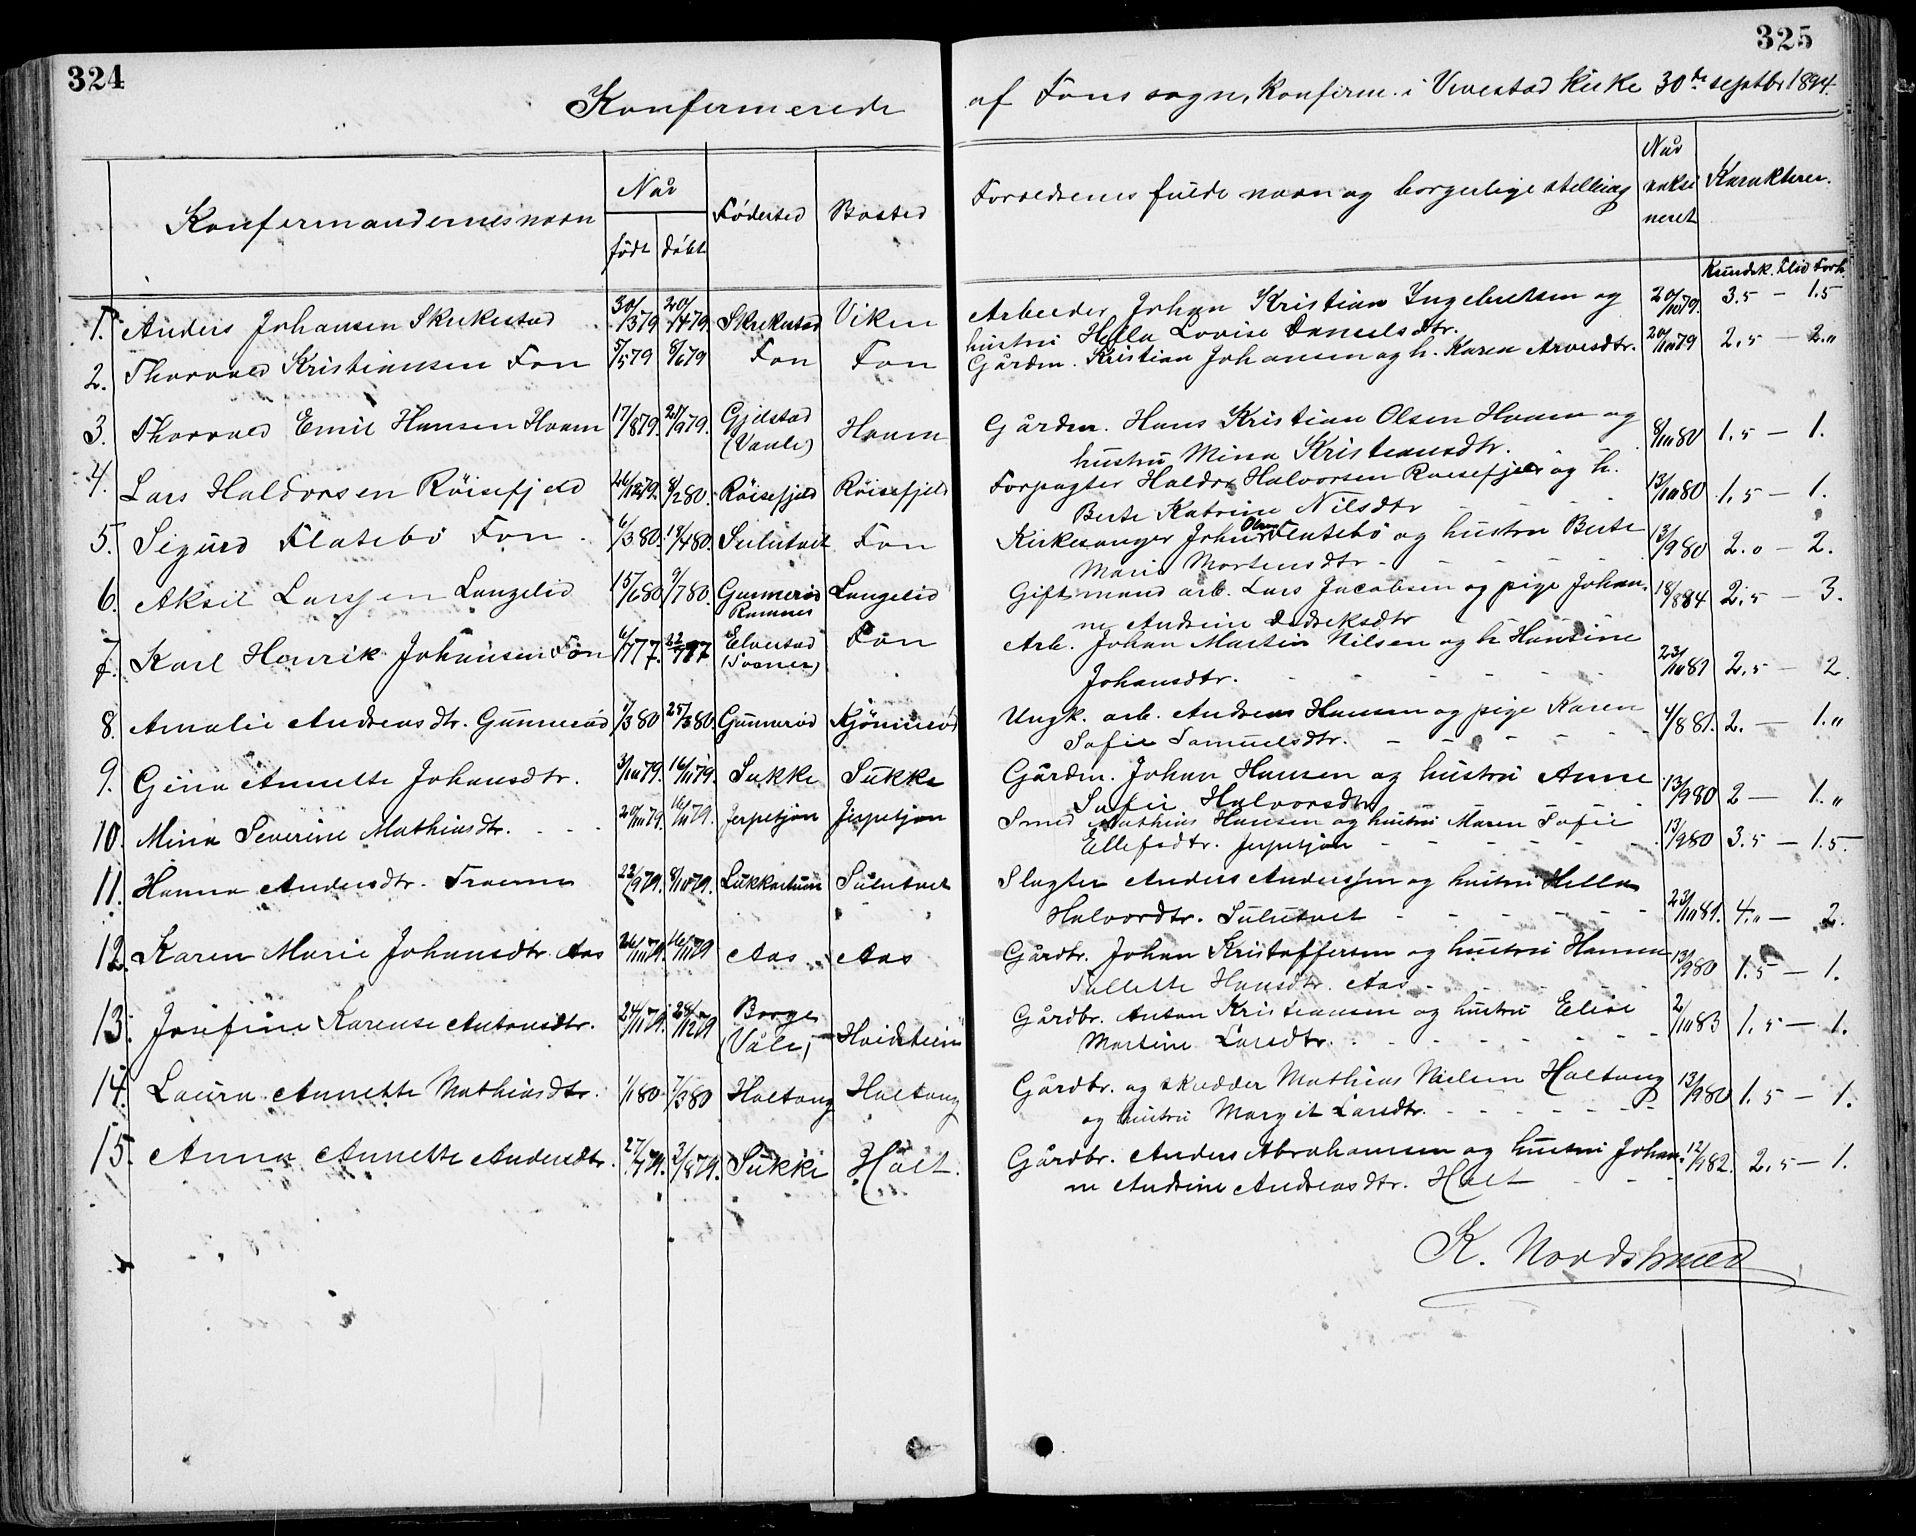 324
325
Konfermerede
af Fons sogn, Konferm. i Vivestad Kirke 30te septbr 1894.
Konfermandernes navn
Naar
født
døbt
Fødested
Bosted
Forældrenes fulde navn og borgerlige stilling
Naar
vaksi
neret
Karakterer.
Kundsk. Flid Forh.
1. Anders Johansen Skrikestad 30/3 79 20/4 79 Skrikestad Viken Arbeider Johan Kristian Ingebretsen og 20/10 79. 3.5 — 1.5
hustru Hella Lovise Danielsdtr.
2. Thorvald Kristiansen Fon 5/5 79 8/6 79 Fon Fon Gårdm. Kristian Johansen og h. Karen Arvesdtr. 20/10 79 2.5 — 2.„
3. Thorvald Emil Hansen Hvam 17/8 79. 21/9 79. Gjelstad Hvam Gårdm. Hans Kristian Olsen Hvam og 8/10 80 1.5 — 1.
(Vaale) hustru Mina Kristiansdtr.
4. Lars Haldorsen Röisefjeld 26/12 79. 8/2 80. Röisefjeld Röisefjeld Forpagter Haldor Halvorsen Roisefjeld og h. 13/10 80 1.5 — 1.
Berte Katrine Nilsdtr
5. Sigurd Flatebö Fon 6/3 80. 18/4 80. Sulutvet Fon Kirkesanger John Olsen Flatebö og hustru Berte 13/9 80 2.0 — 2.
Marie Mortensdtr
6. Aksel Larsen Langelid 15/6 80. 9/7 80. Gunnerød Langelid Gift mand arb. Lars Jacobsen og pige Johan- 18/8 84 2.5 — 3.
Ramnes ne Andrine Didreksdtr
7. Karl Henrik Johansen Fon 6/7 77. 22/7 77 Elvestad Fon Arb. Johan Martin Nilsen og h. Hansine 23/10 81 2.5 — 2.
Johansdtr.
8. Amalie Andreasdtr. Gunnerød 1/3 80 25/3 80. Gunnerød Kjönnerød Ungk. arb. Andreas Hansen og pige Karen 4/8 81. 2. — 1.„
Sofie Samuelsdtr.
9. Gina Annette Johansdtr. 3/10 79. 16/11 79. Sukke Sukke Gårdm. Johan Hansen og hustru Anne 13/9 80 2 — 1.„
Sofie Halvorsdtr
10. Mina Severine Mathiasdtr. 20/10 79. 16/11 79. Jerpetjøn Jerpetjøn Smed Mathias Hansen og hustru Maren Sofie 13/9 80 3.5 — 1.5.
Ellefsdtr. Jerpetjøn
11. Hanna Andersdtr. 22/9 79. 8/10 79. Sulutvet Slagter Anders Andersen og hustru Hella 23/10 81. 4.„ — 2.
Halvordtr. Sulutvet
12. Karen Marie Johansdtr. Aas 26/10 79. 16/11 79 Aas Aas Gårdbr. Johan Kristoffersen og hustru Hanna 13/9 80 1.5 — 1.
Tallette Hansdtr. Aas
13. Josefine Karense Antonsdtr. 24/11 79. 28/12 79 Borge Hvidstein Gårdbr. Anton Kristiansen og hustru Elise 2/10 83 1.5 — 1.
(Våle) Martine Larsdtr.
14. Laura Annette Mathiasdtr. 1/1 80 7/3 80 Holtung Holtung Gårdbr. og skrædder Mathias Nielsen Holtung 13/9 80 1.5 — 1.
og hustru Margit Larsdtr.
15. Anna Annette Andersdtr. 27/7 79. 3/8 79. Sukke Holt. Gårdbr. Anders Abrahamsen og hustru Johan- 12/9 82. 2.5 — 1.
ne Andrine Andreasdtr. Holt
K. Nordstrøm